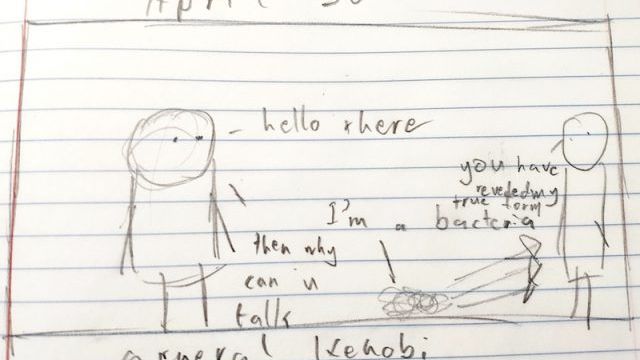 April 30
hello there
you have
reveded my
true form
I'm a bacteria
then why
can u
talk
general Kenobi